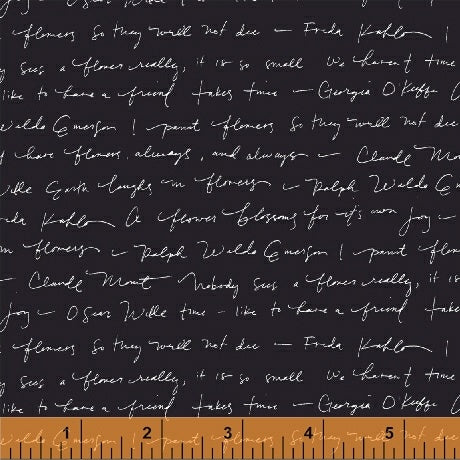 flowers so they will not die — Frida Kahlo I
sees a flower really, it is so small We haven't time
like to have a friend takes time — Georgia O'Keeffe
Waldo Emerson I paint flowers so they will not die
have flowers, always, and always — Claude Mon
Earth laughs in flowers — Ralph Waldo Em
da Kahlo A flower blossoms for it's own joy —
in flowers — Ralph Waldo Emerson I paint flow
— Claude Monet Nobody sees a flower really, it is
Joy — Oscar Wilde time - like to have a friend take
flowers so they will not die — Frida Kahlo I
sees a flower really, it is so small We haven't time
like to have a friend takes time — Georgia O'Keeffe
1 2 3 4 5
Waldo Emerson I paint flowers so they will not die